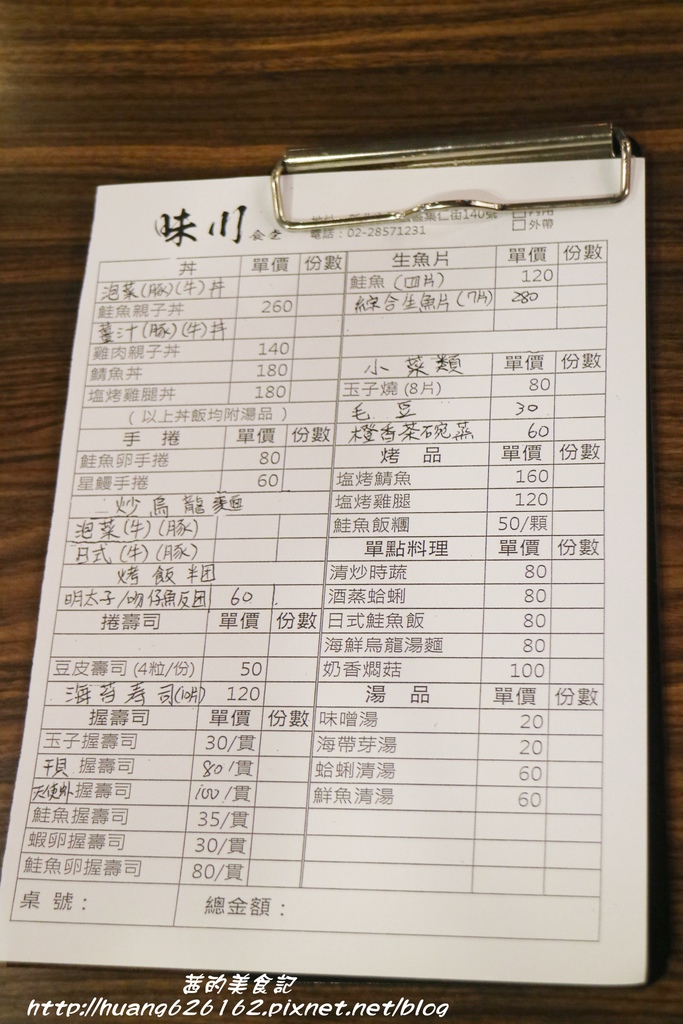 味川 食堂
集仁街140號
電話：02-28571231
外帶
丼 單價 份數
泡菜(豚)(牛)丼
鮭魚親子丼 260
薑汁(豚)(牛)丼
雞肉親子丼 140
鯖魚丼 180
塩烤雞腿丼 180
(以上丼飯均附湯品)
手 捲 單價 份數
鮭魚卵手捲 80
星鰻手捲 60
炒烏龍麵
泡菜(牛)(豚)
日式(牛)(豚)
烤飯
明太子/吻仔魚飯团 60
捲壽司 單價 份數
豆皮壽司(4粒/份) 50
海苔壽司(10片) 120
握壽司 單價 份數
玉子握壽司 30/貫
干貝 握壽司 80/貫
天使蝦握壽司 100/貫
鮭魚握壽司 35/貫
蝦卵握壽司 30/貫
鮭魚卵握壽司 80/貫
生魚片 單價 份數
鮭魚(四片) 120
綜合生魚片(7片) 280
小菜類 單價 份數
玉子燒(8片) 80
毛豆 30
橙香茶碗蒸 60
烤 品 單價 份數
塩烤鯖魚 160
塩烤雞腿 120
鮭魚飯糰 50/顆
單點料理 單價 份數
清炒時蔬 80
酒蒸蛤蜊 80
日式鮭魚飯 80
海鮮烏龍湯麵 80
奶香燜菇 100
湯 品 單價 份數
味噌湯 20
海帶芽湯 20
蛤蜊清湯 60
鮮魚清湯 60
桌 號： 總金額：
茜的美食記
http://huang626162.pixnet.net/blog